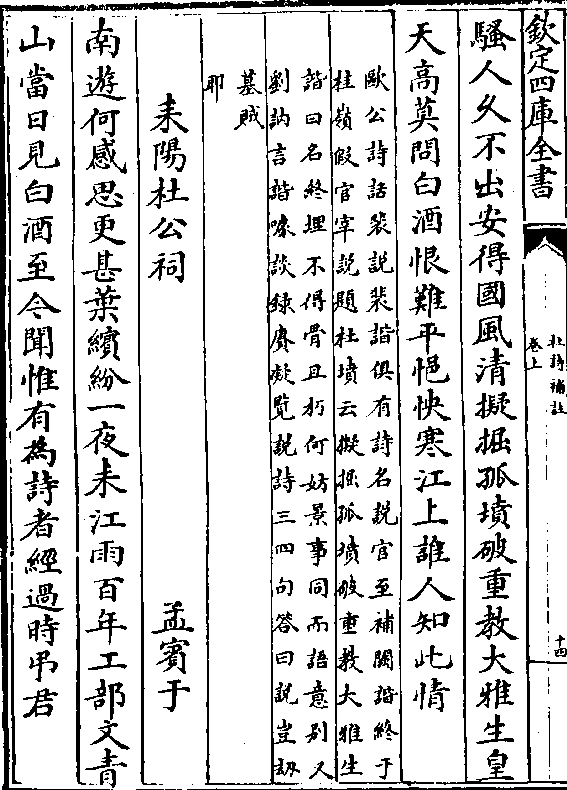 欽定四庫全書
杜詩補註
卷上
十四
騷人久不出安得國風清擬掘孤墳破重教大雅生皇
天高莫問白酒恨難平悒怏寒江上誰人知此情
歐公詩話裴説裴諧俱有詩名説官至補闕諧終于
桂嶺假官宰説題杜墳云擬掘孤墳破重教大雅生
諧曰名終埋不得骨且朽何妨景事同而語意别又
劉訥言諧噱談録賡凝覽説詩三四句答曰説豈刼
墓賊
耶
耒陽杜公祠 孟賓于
南遊何感思更甚葉繽紛一夜耒江雨百年工部文青
山當日見白酒至今聞惟有為詩者經過時弔君